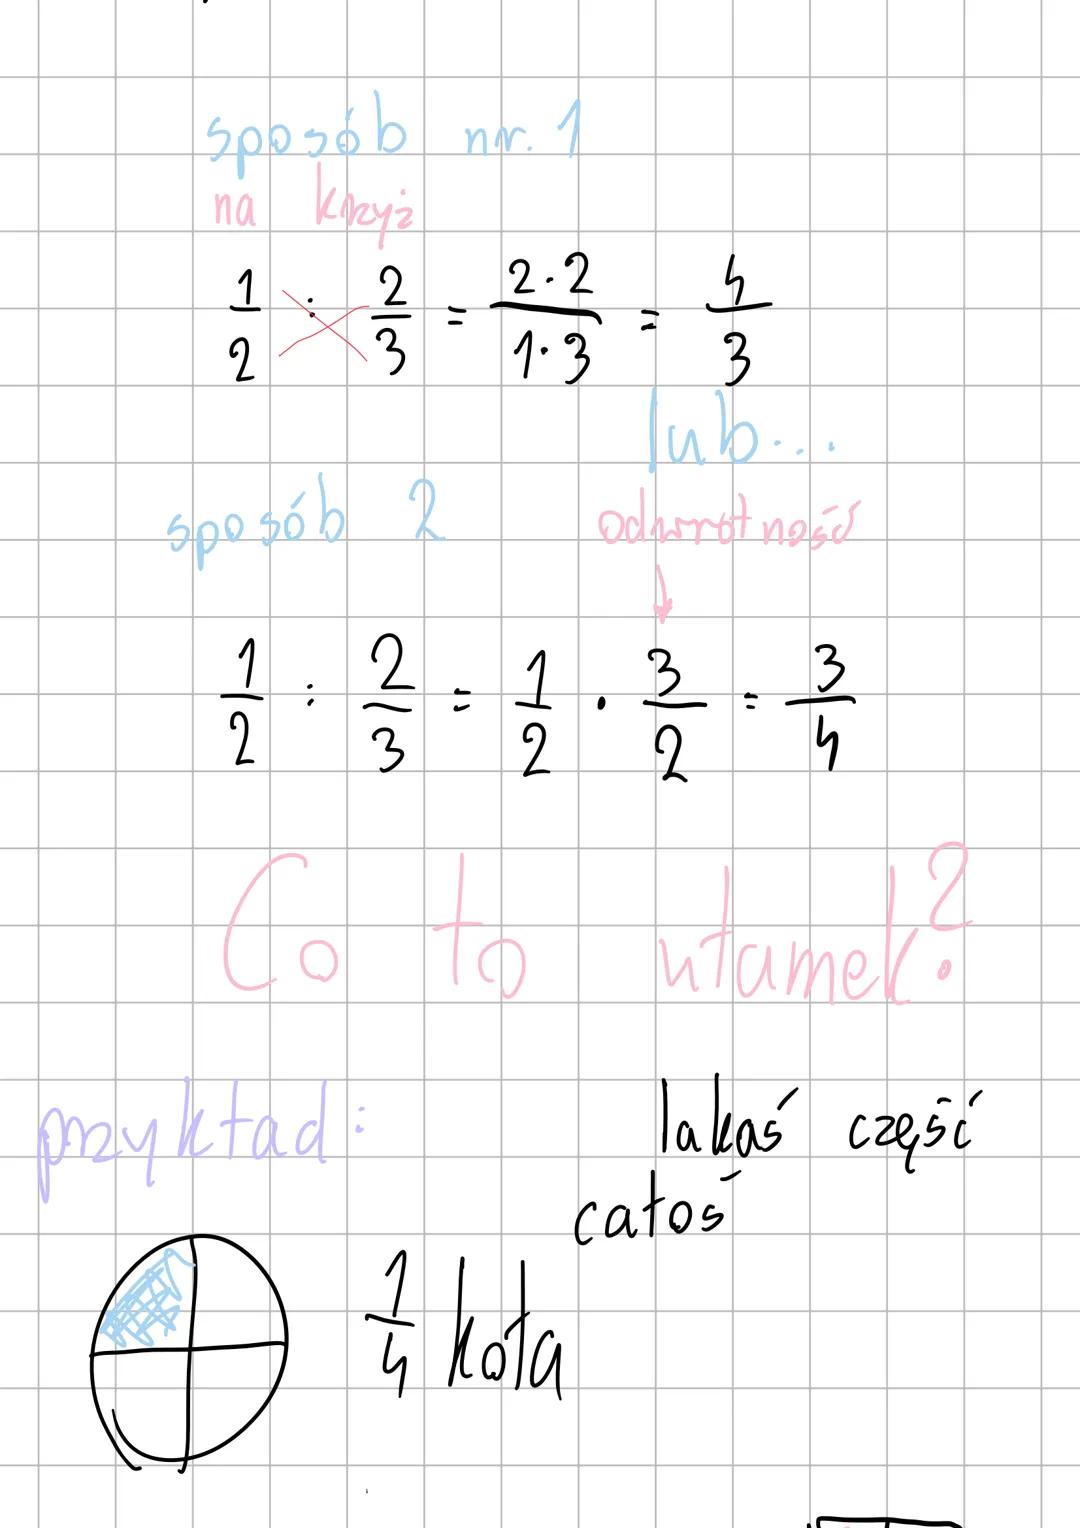 sposób nr. 1
na krzyż
1/2 : 2/3 = 2·2/1·3 = 4/3
lub...
sposób 2
odwrotność
1/2 : 2/3 = 1/2 · 3/2 = 3/4
Co to ułamek?
przykład:
Jakaś część
całoś
1/4 koła